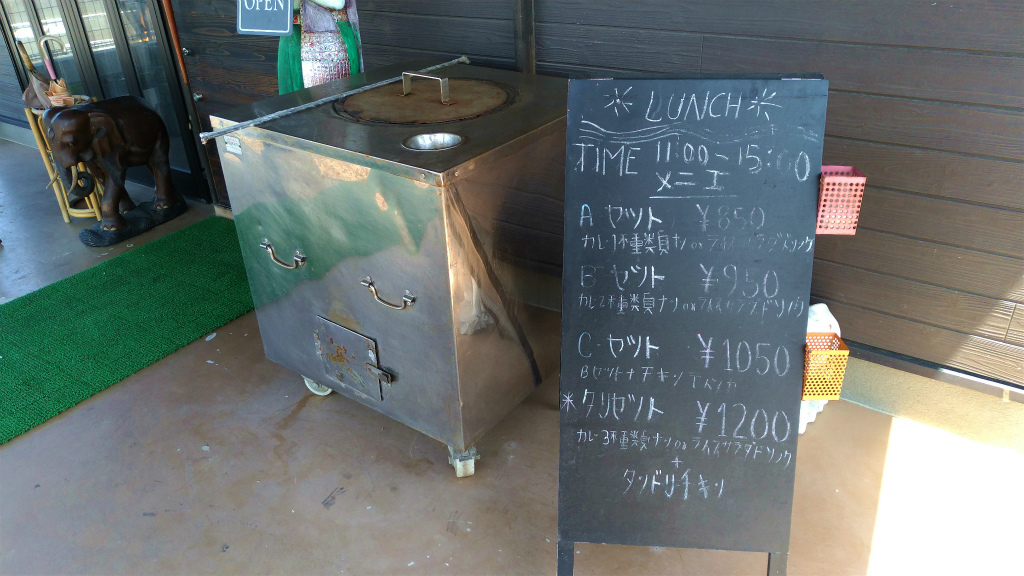 OPEN
LUNCH
TIME 11:00-15:00
メニエ
A セット ¥850
カレー1種類 ナン or ライス サラダ ドリンク
B セット ¥950
カレー2種類 ナン or ライス サラダ ドリンク
C セット ¥1050
Bセット + チキン
※ クリセット ¥1200
カレー3種類 ナン or ライス サラダ ドリンク
+
タンドリチキン